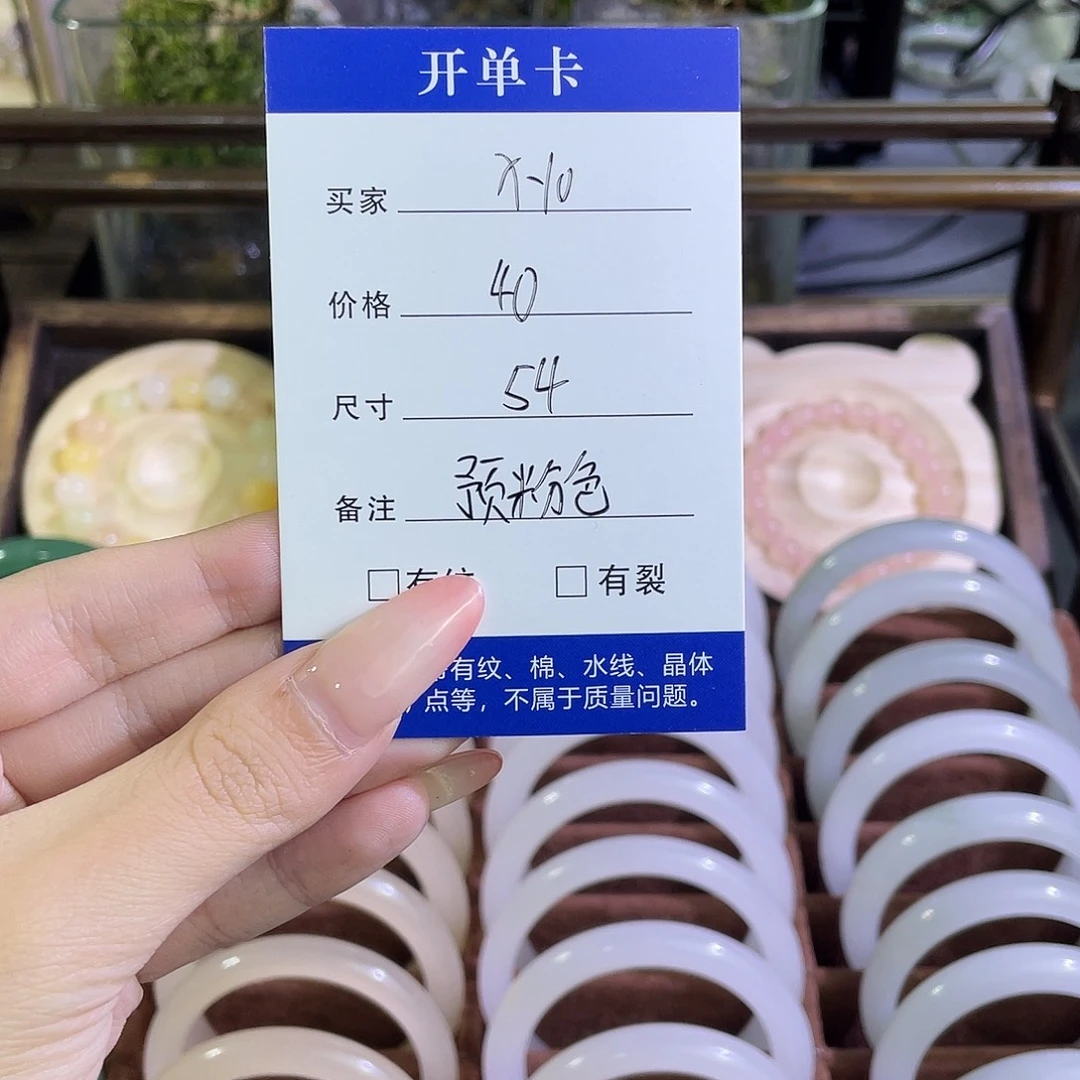 开单卡
买家 X-10
价格 40
尺寸 54
备注 预粉色
□有纹 □有裂
有纹、棉、水线、晶体
点等，不属于质量问题。